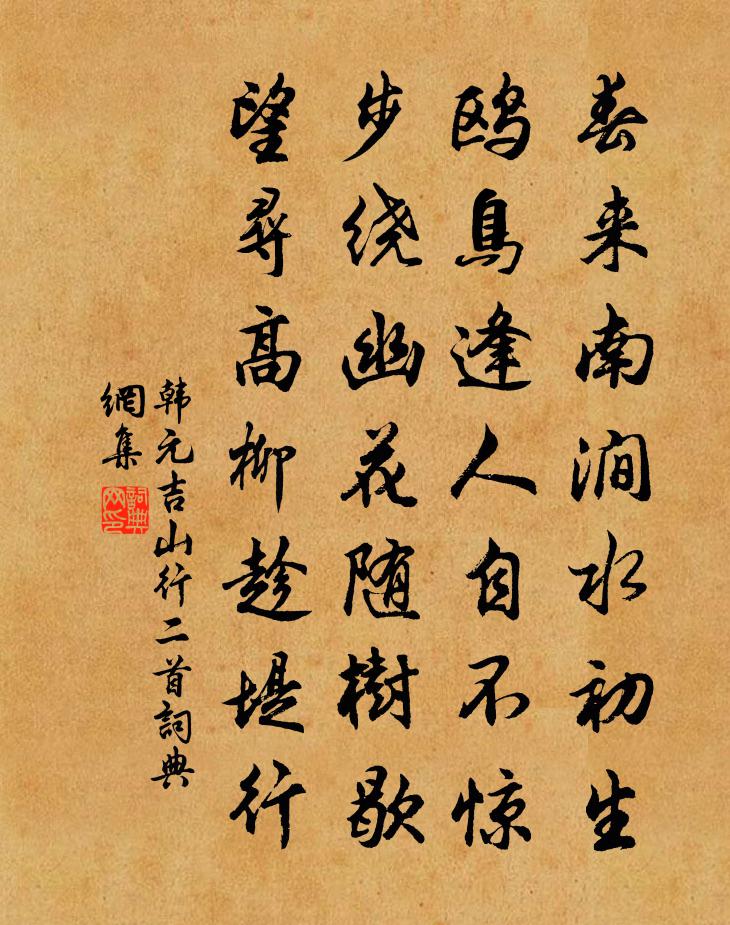 春来南涧水初生
鸥鳥逢人自不惊
步绕幽花随樹歇
望尋高柳趁堤行
韩元吉山行二首詞典
網集
詞典
网印